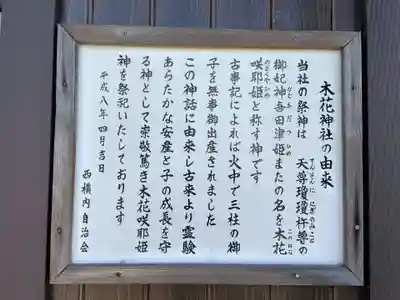 木花神社の由来
当社の祭神は 天尊瓊瓊杵尊の
御妃神吾田津姫またの名を木花
咲耶姫と称す神です
古事記によれば火中で三柱の御
子を無事御出産されました
この神話に由来し古来より霊験
あらたかな安産と子の成長を守
る神として崇敬篤き木花咲耶姫
神を祭祀いたしております
平成八年四月吉日
西横内自治会